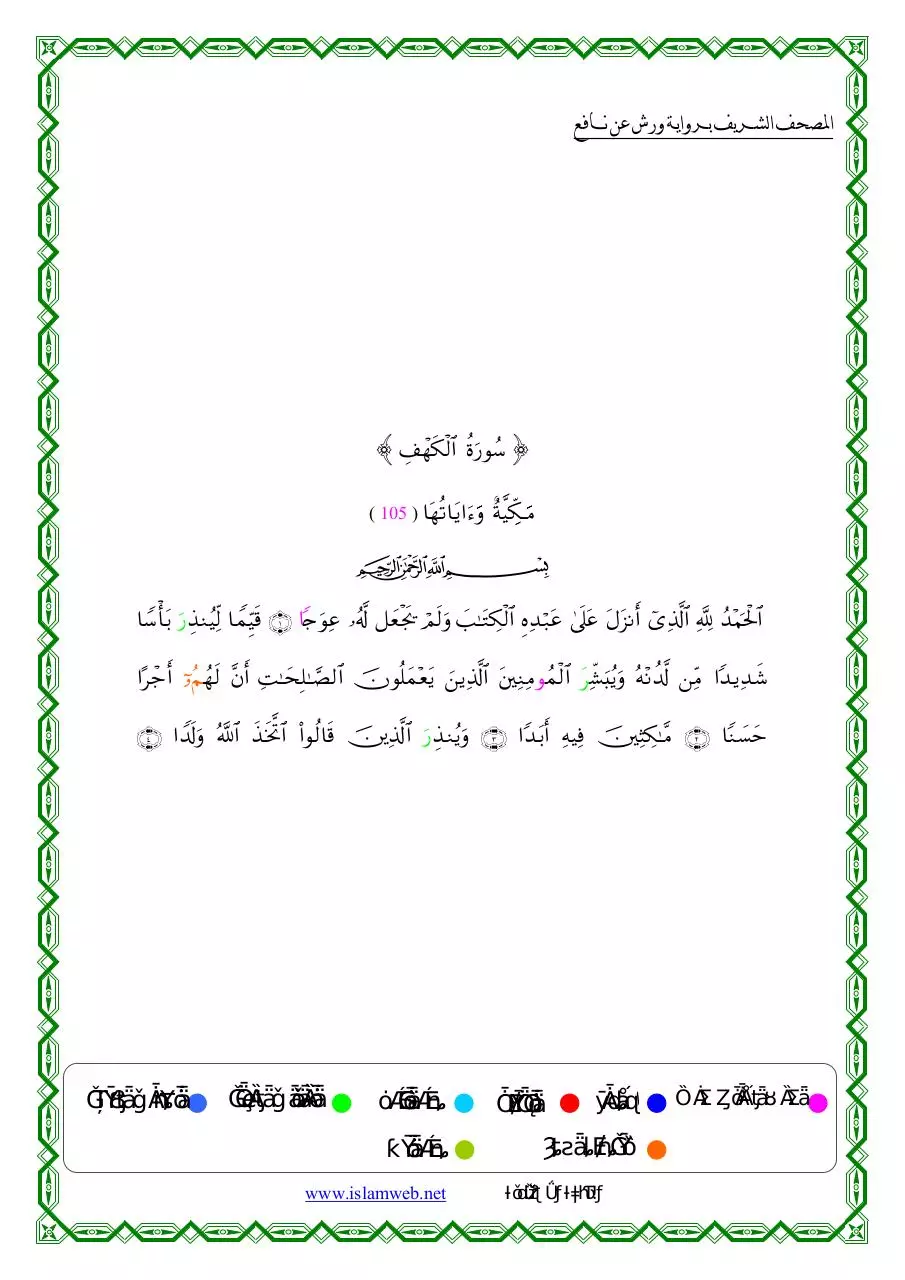 المصحف الشريف برواية ورش عن نافع
﴿ سُورَةُ ٱلْكَهْفِ ﴾
مَكِّيَّةٌ وَءَايَاتُهَا ( 105 )
بِسْمِ ٱللَّهِ ٱلرَّحْمَٰنِ ٱلرَّحِيمِ
ٱلْحَمْدُ لِلَّهِ ٱلَّذِىٓ أَنزَلَ عَلَىٰ عَبْدِهِ ٱلْكِتَٰبَ وَلَمْ يَجْعَل لَّهُۥ عِوَجًا ١ قَيِّمًا لِّيُنذِرَ بَأْسًا
شَدِيدًا مِّن لَّدُنْهُ وَيُبَشِّرَ ٱلْمُومِنِينَ ٱلَّذِينَ يَعْمَلُونَ ٱلصَّٰلِحَٰتِ أَنَّ لَهُمُۥٓ أَجْرًا
حَسَنًا ٢ مَّٰكِثِينَ فِيهِ أَبَدًا ٣ وَيُنذِرَ ٱلَّذِينَ قَالُوا۟ ٱتَّخَذَ ٱللَّهُ وَلَدًا ٤
www.islamweb.net